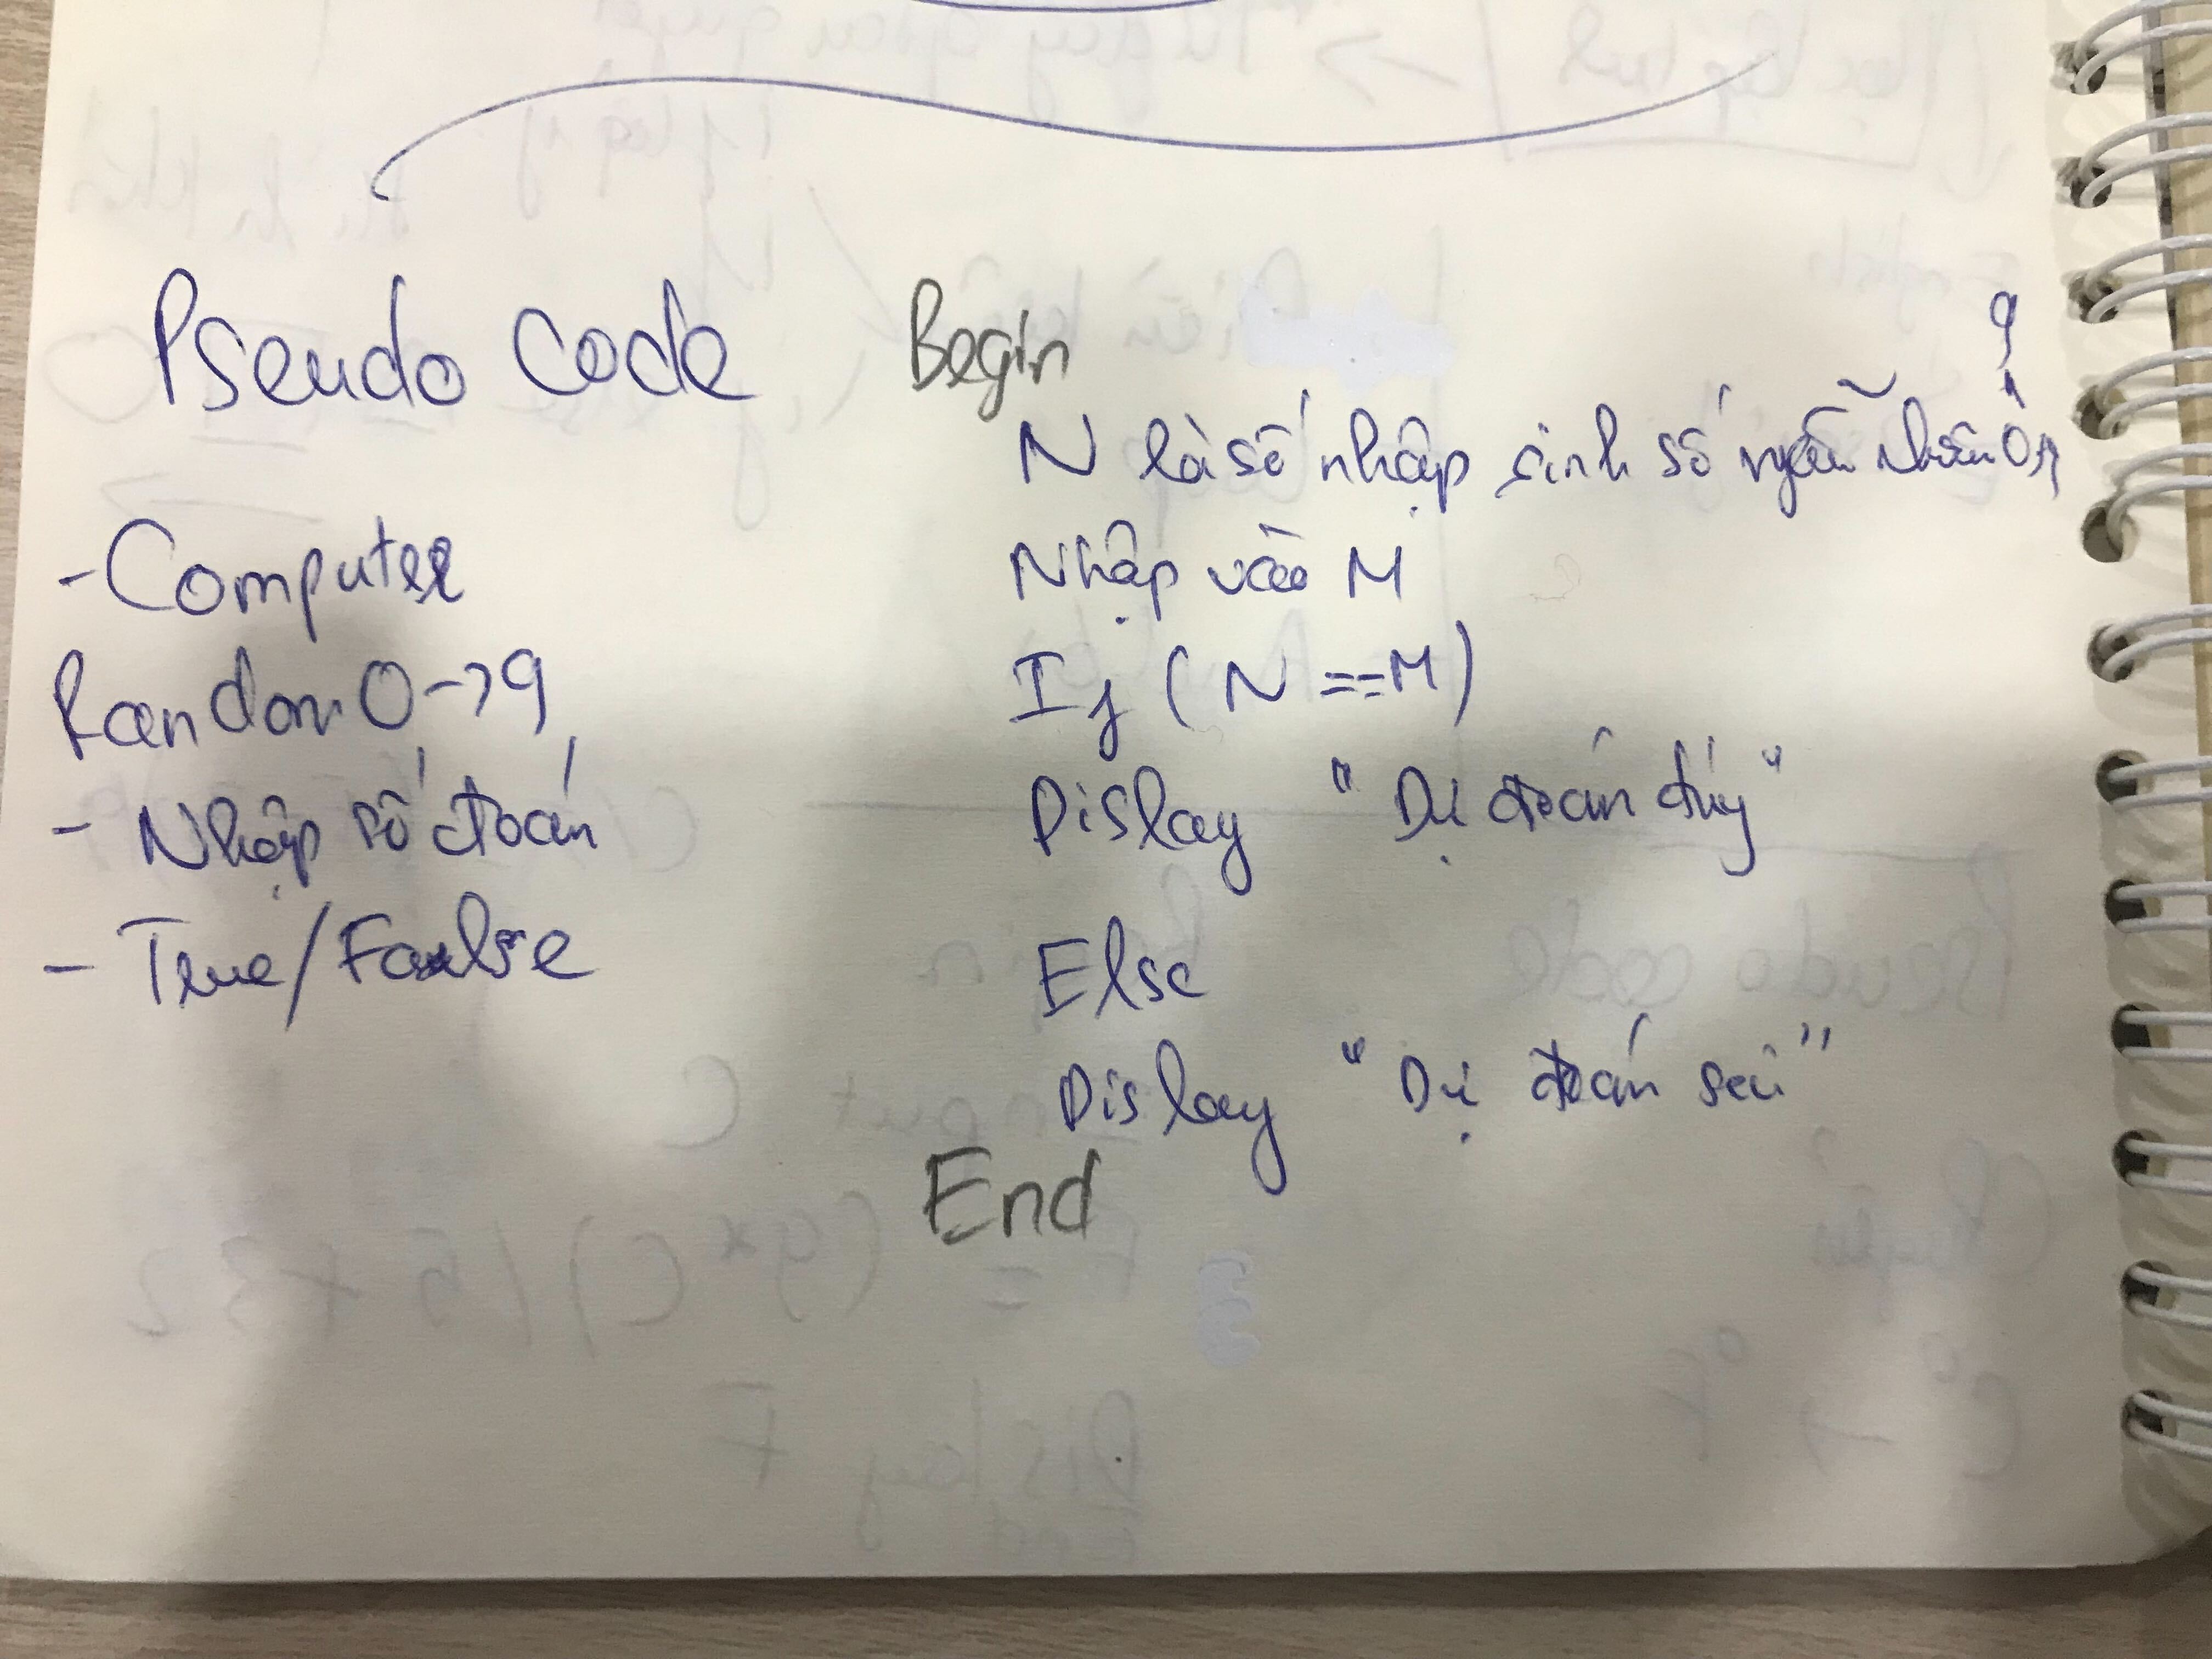 Pseudo Code
- Computer
Random 0->9
- Nhập số đoán
- True/Faslse
Begin
N là số nhập sinh số ngẫu nhiên 0->9
Nhập vào M
If (N ==M)
Dislay "Dự đoán đúng"
Else
Dislay "Dự đoán sai"
End